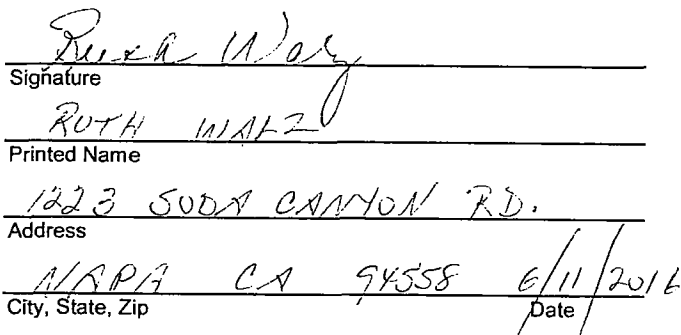 Ruth Walz
Signature
RUTH WALZ
Printed Name
1223 SODA CANYON RD.
Address
NAPA CA 94558 6/11/2016
City, State, Zip Date